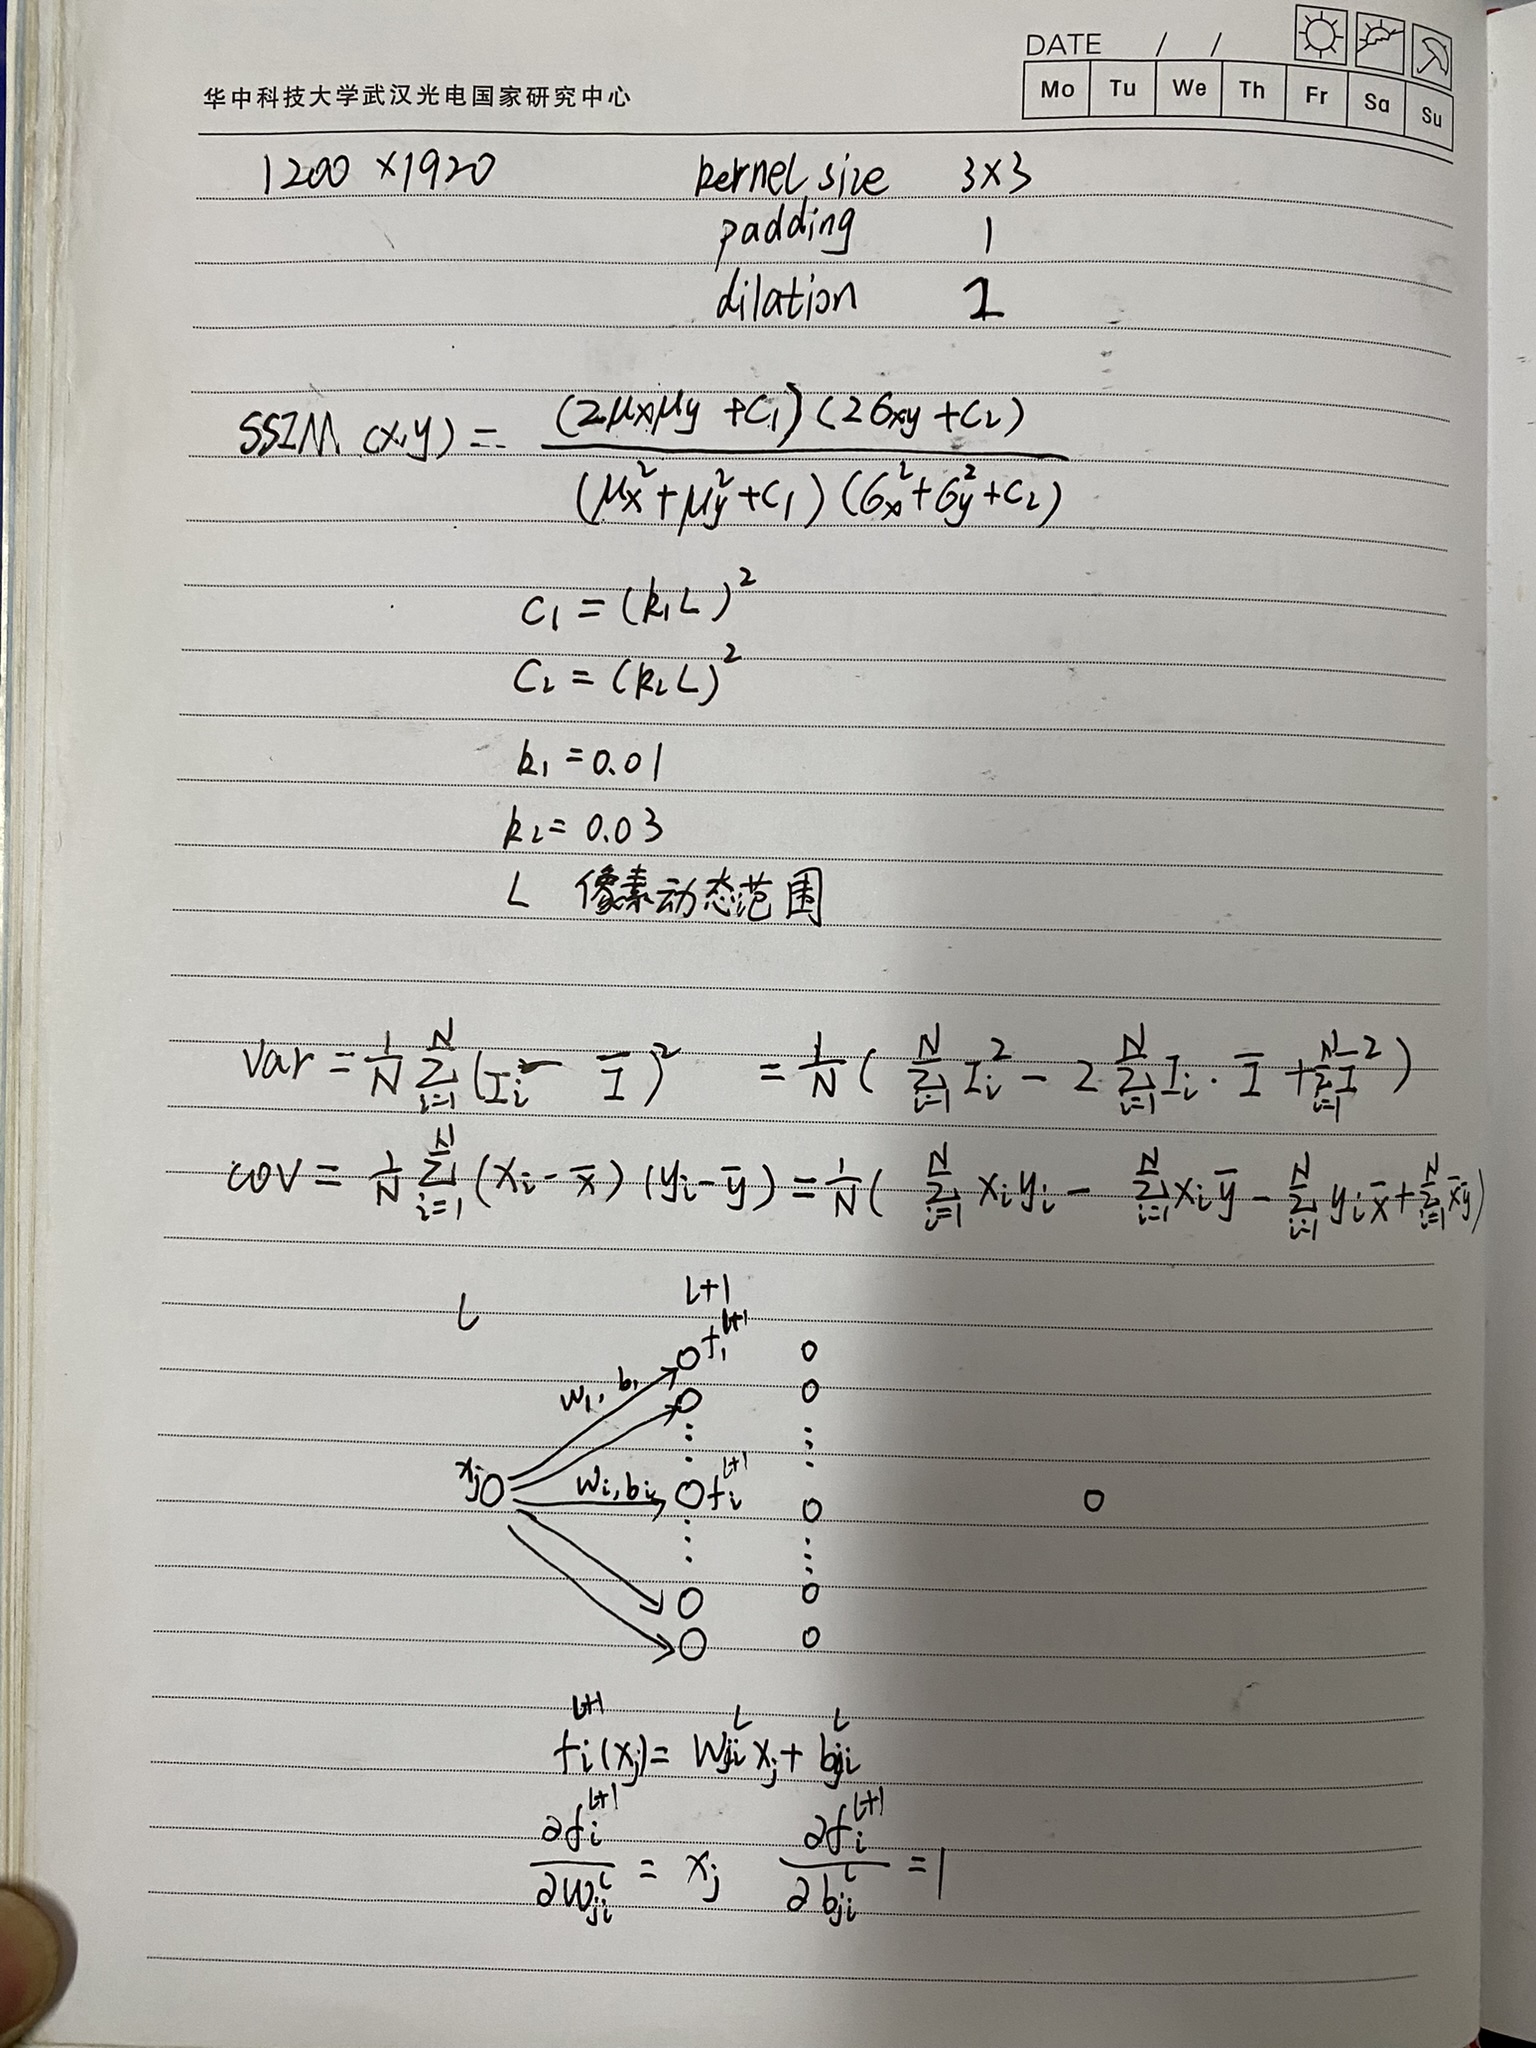 华中科技大学武汉光电国家研究中心
DATE / /
Mo Tu We Th Fr Sa Su
1200 × 1920 kernel size 3×3
padding 1
dilation 1
SSIM (x,y) = (2μxμy + C₁)(2σxy + C₂) / (μx² + μy² + C₁)(σx² + σy² + C₂)
C₁ = (k₁L)²
C₂ = (k₂L)²
k₁ = 0.01
k₂ = 0.03
L 像素动态范围
Var = 1/N ∑_{i=1}^{N} (I_i − Ī)² = 1/N ( ∑_{i=1}^{N} I_i² − 2 ∑_{i=1}^{N} I_i · Ī + ∑_{i=1}^{N} Ī² )
cov = 1/N ∑_{i=1}^{N} (x_i − x̄)(y_i − ȳ) = 1/N ( ∑_{i=1}^{N} x_i y_i − ∑_{i=1}^{N} x_i ȳ − ∑_{i=1}^{N} y_i x̄ + ∑_{i=1}^{N} x̄ȳ )
L L+1
f₁^{L+1}
w₁, b₁
x_j w_i, b_i f_i^{L+1}
f_i^{L+1}(x_j) = w_{ji}^{L} x_j + b_{ji}^{L}
∂f_i^{L+1} / ∂w_{ji}^{L} = x_j ∂f_i^{L+1} / ∂b_{ji}^{L} = 1